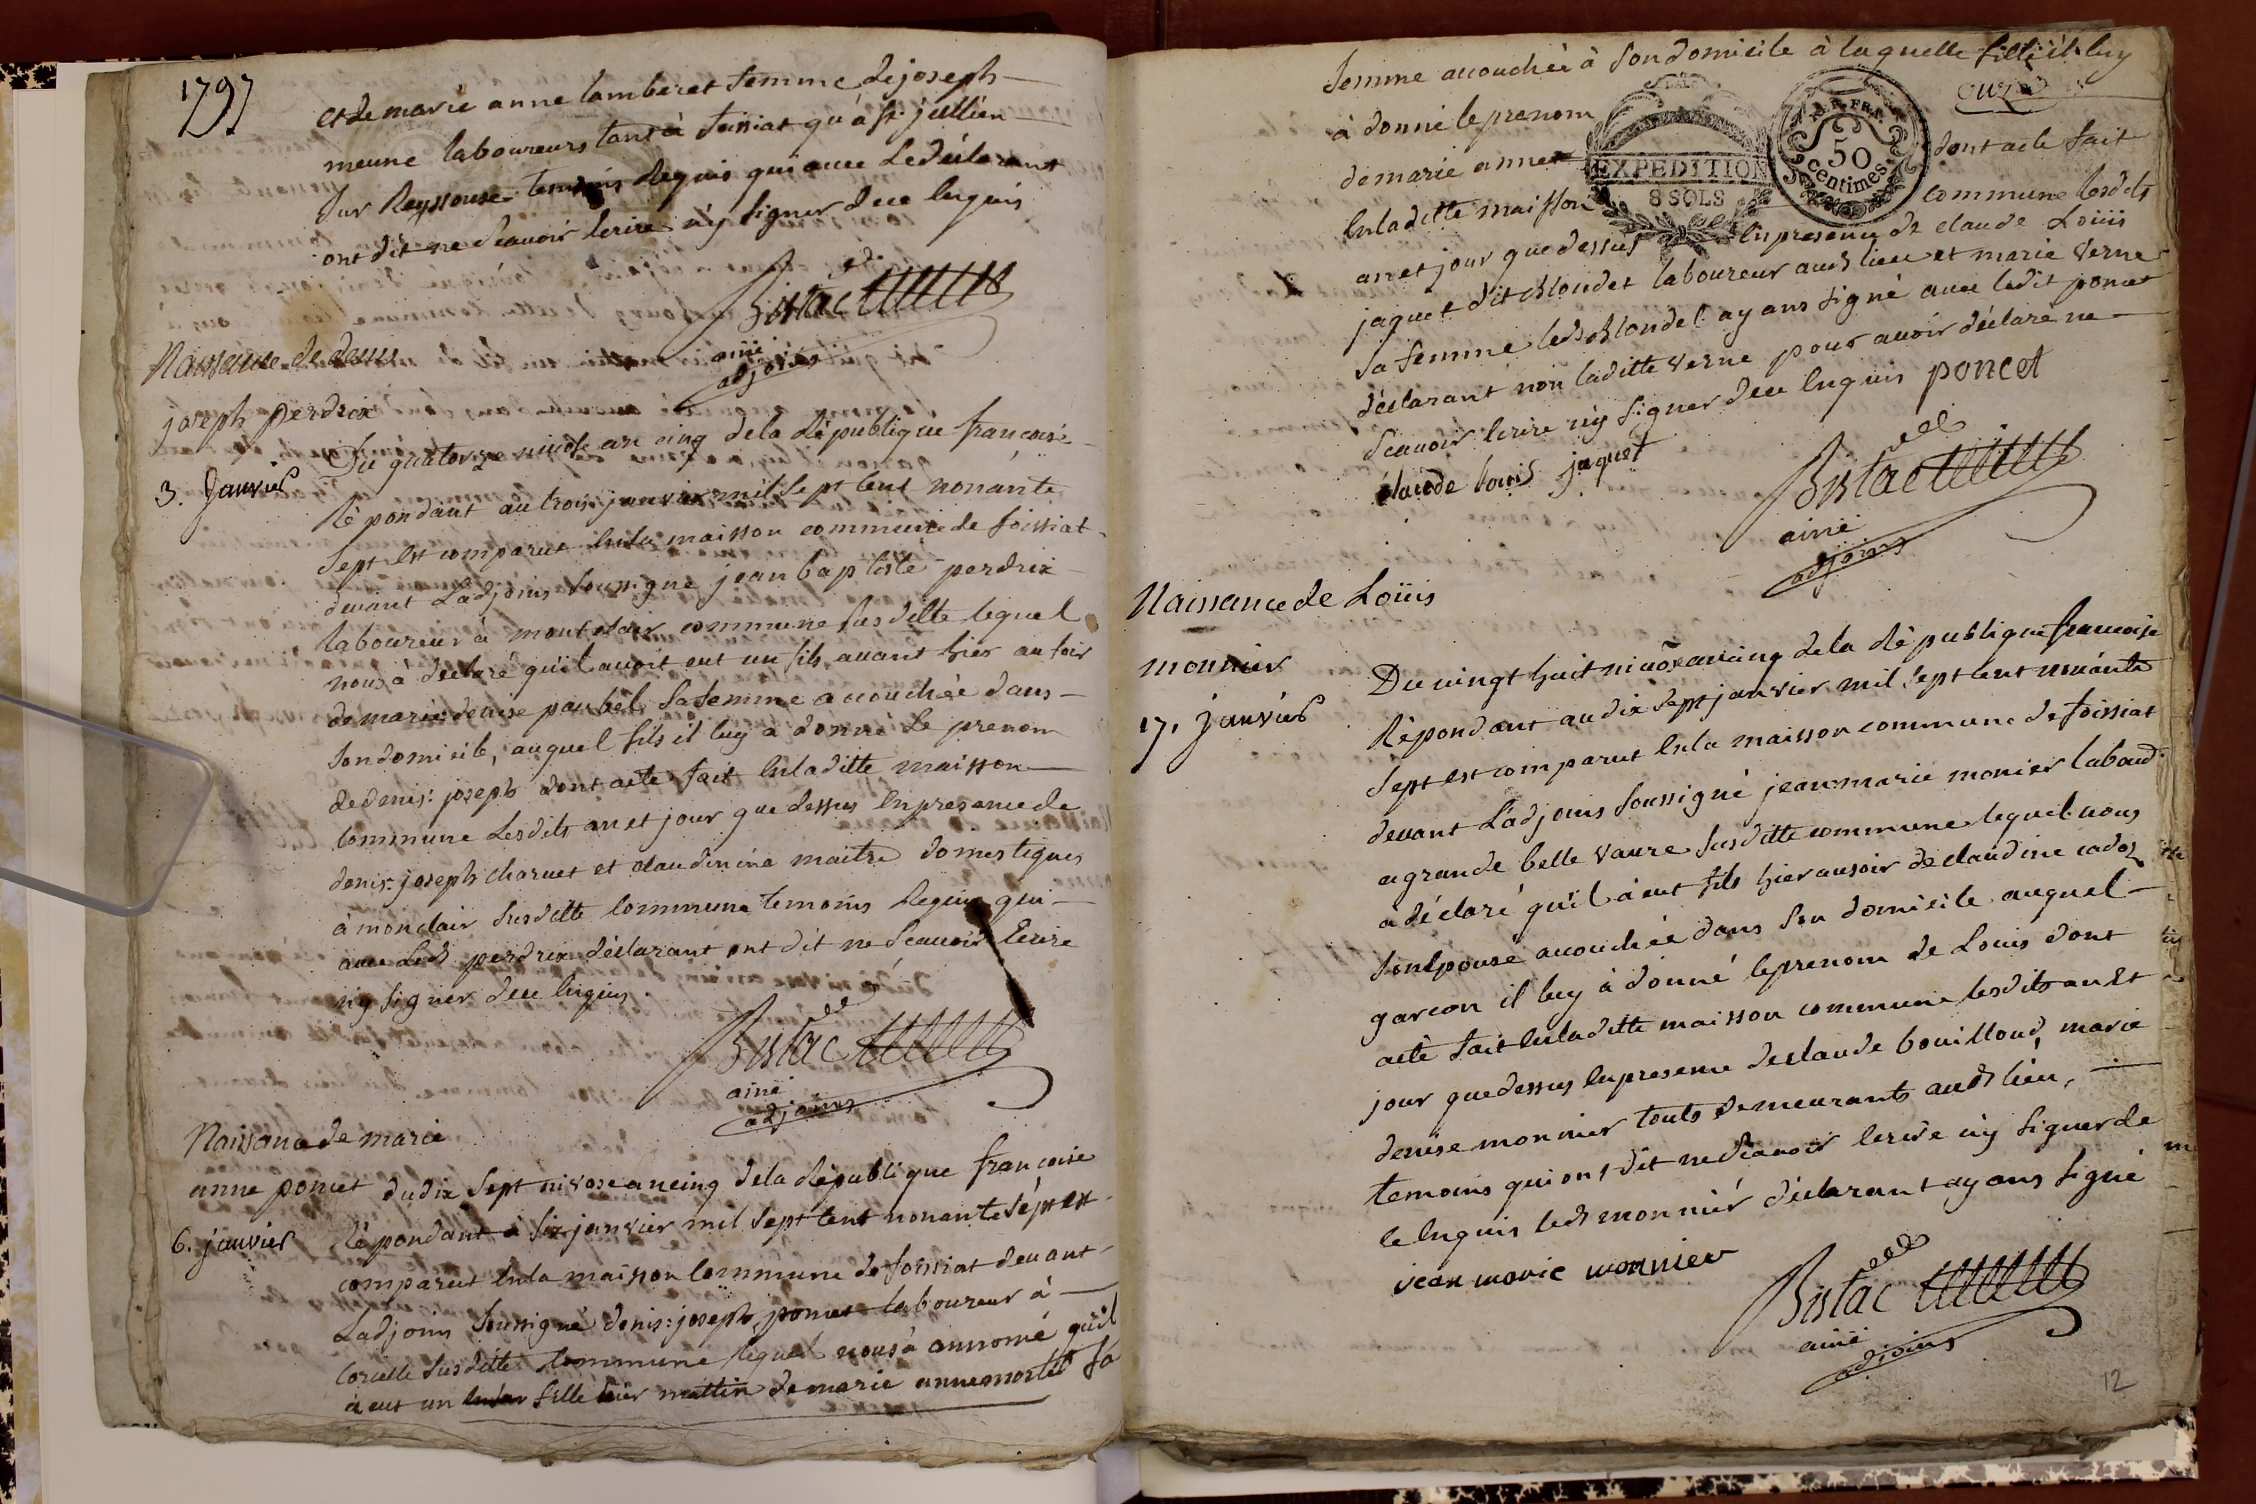 1797
et de marie anne lamberet femme de joseph
meune laboureurs tant à foissiat qu'à st jullien
sur Reyssouse temoins Requis qui avec Le déclarant
ont dit ne scavoir Ecrire n'y signer dece Enquis
Bistac
ainé
adjoins
Naissance de denis
joseph perdrix
3. Janvier
Du quatorze nivose an cinq de la République francoise
Répondant au trois janvier mil sept cent nonante
sept Est comparut Enla maisson commune de foissiat
devant L'adjoins soussigné jean baptiste perdrix
laboureur à montclair commune susditte lequel
nous à declaré qu'il avoit eut un fils avant hier au soir
de marie denise paubel sa femme accouchée dans
son domicile, auquel fils il luy à donné le prenom
de denis: joseph dont acte fait Enladitte maisson
commune Lesdits an et jour que dessus En presence de
denis: joseph charvet et claudinne maitre domestiques
à monclair susditte commune temoins Requis qui
avec Led perdrix déclarant ont dit ne scavoir Ecrire
n'y signer dece Enquis.
Bistac
ainé
adjoins
Naissance de marie
anne poncet
6. janvier
du dix sept nivose an cinq dela République francoise
Répondant à six janvier mil sept cent nonante sept est
comparut Enla maisson commune de foissiat devant
L'adjoins soussigné denis: joseph poncet laboureur à
corcelle susditte commune lequel nous à annomé qu'il
à eut un fille hier mattin de marie anne mortel sa
femme accouchée à son domicile à laquelle fille il luy
à donné le prenom
de marie anne
dont acte fait
Enladitte maisson
commune lesdits
an et jour que dessus
En presence de claude Loüis
EXPEDITION
8 SOLS
RÉP. FRA.
50
centimes
jaquet dit blondet laboureur aud lieu et marie verne
sa femme led blondet ayans signé avec ledit poncet
déclarant non laditte verne pour avoir déclaré ne
scavoir Ecrire n'y signer dece Enquis poncet
claude louis jaquet
Bistac
ainé
adjoins
Naissance de Loüis
monnier
17. Janvier
Du vingt huit nivôse an cinq dela République francoise
Répondant au dix sept janvier mil sept cent nonante
sept est comparut Enla maisson commune de foissiat
devant L'adjoins soussigné jean marie monier laboud:
a grande belle vavre susditte commune lequel nous
à déclaré qu'il à eut fils hier au soir de claudine cadoz
son Epouse accouchée dans son domicile auquel
garcon il luy à donné le prenom de Louis dont
acte fait Enladitte maisson commune lesdits an Et
jour que dessus En presence de claude bouilloud, marie
denise monnier touts demeurants aud lieu,
temoins qui ont dit ne scavoir Ecrire n'y signer de
ce Enquis led monnier déclarant ayans signé
jean marie monnier
Bistac
ainé
adjoins
12